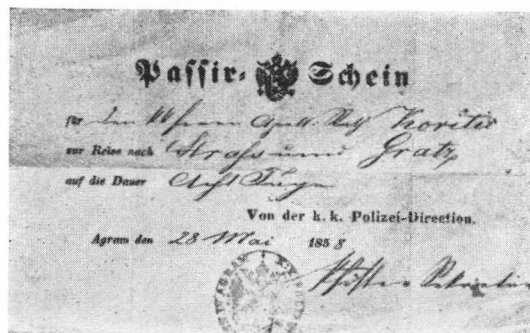 Passir-Schein
für den Herrn Koritić
zur Reise nach Strass und Gratz
auf die Dauer Acht Tage
Von der k. k. Polizei-Direction.
Agram den 28 Mai 1858
Sekretär
AGRAM